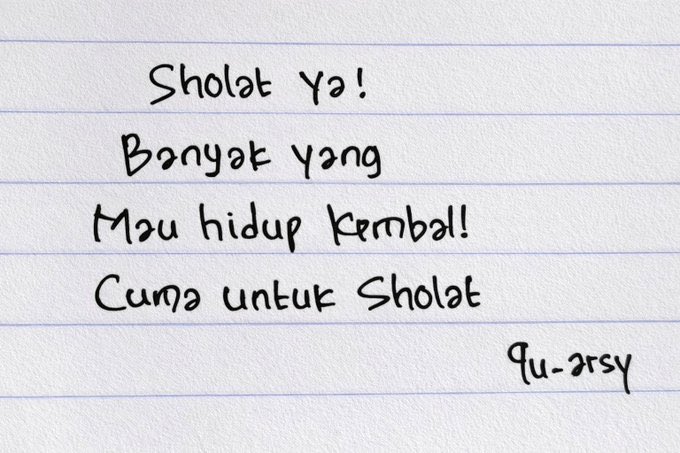 Sholat ya!
Banyak yang
Mau hidup kembali
Cuma untuk Sholat
qu-arsy